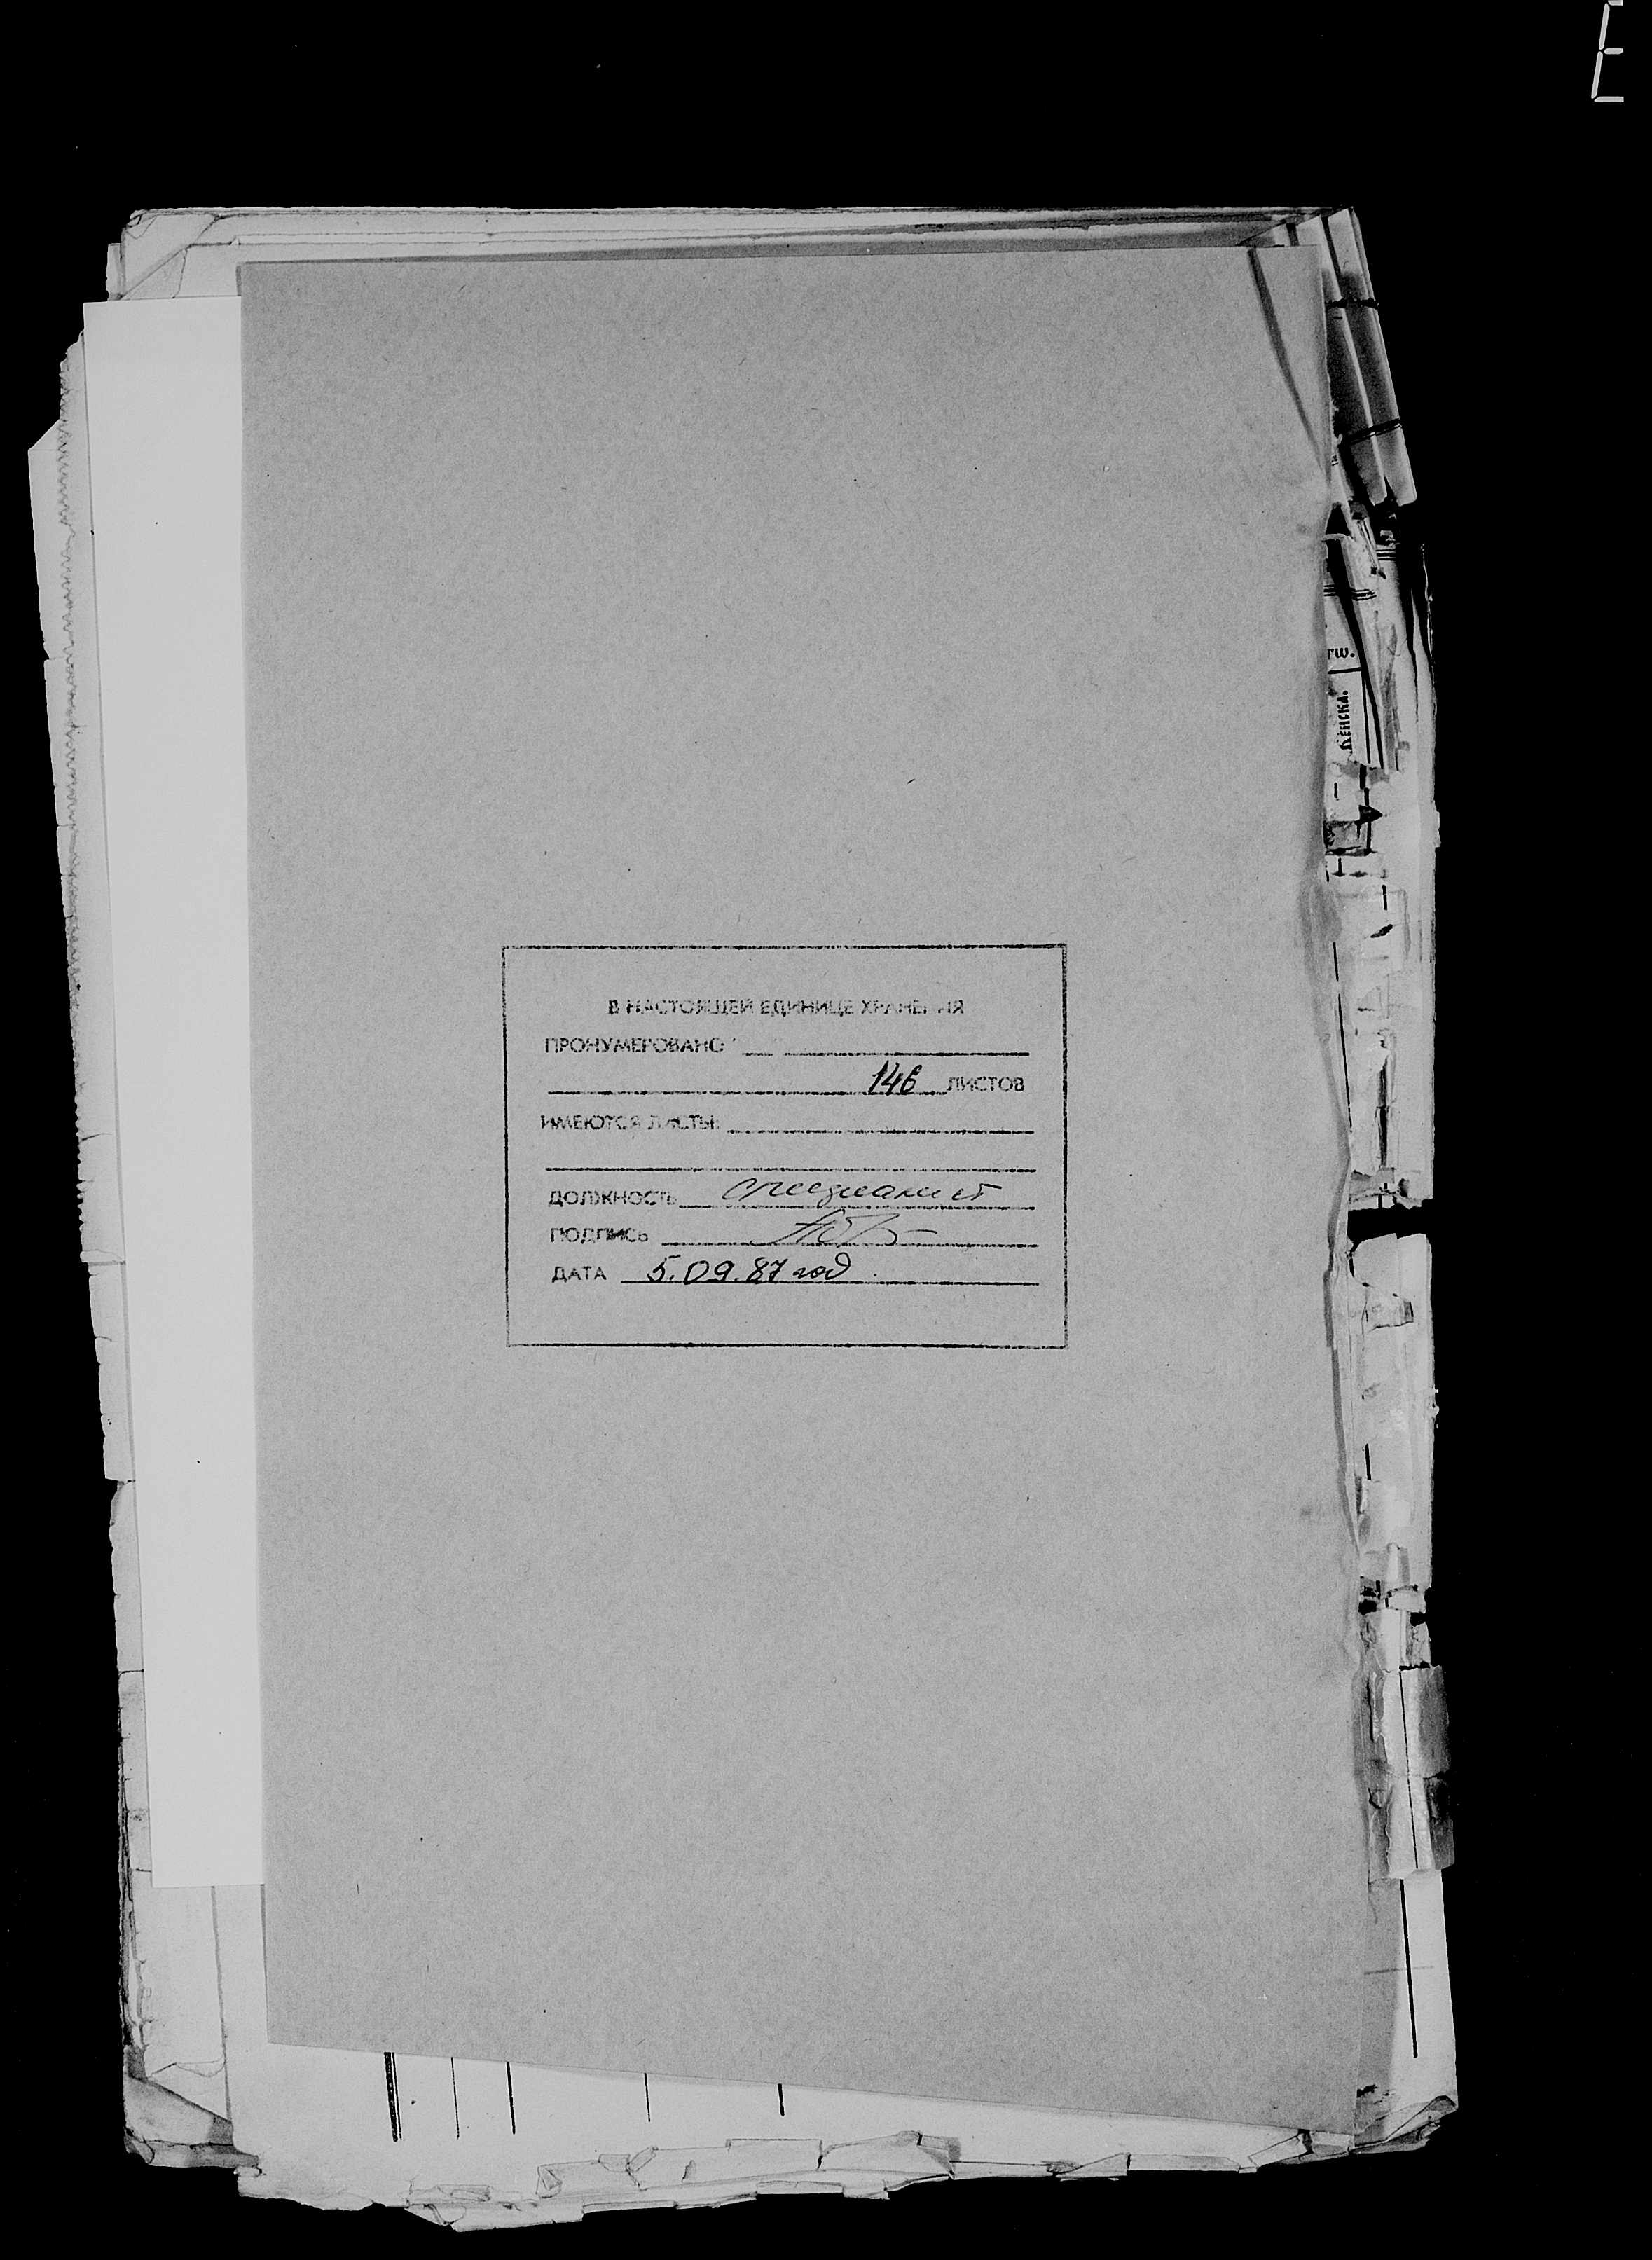 E
тw.
ДЕНСКА.
В НАСТОЯЩЕЙ ЕДИНИЦЕ ХРАНЕНИЯ
ПРОНУМЕРОВАНО
146 ЛИСТОВ
ИМЕЮТСЯ ЛИСТЫ:
ДОЛЖНОСТЬ специалист
ПОДПИСЬ
ДАТА 5.09.87 год